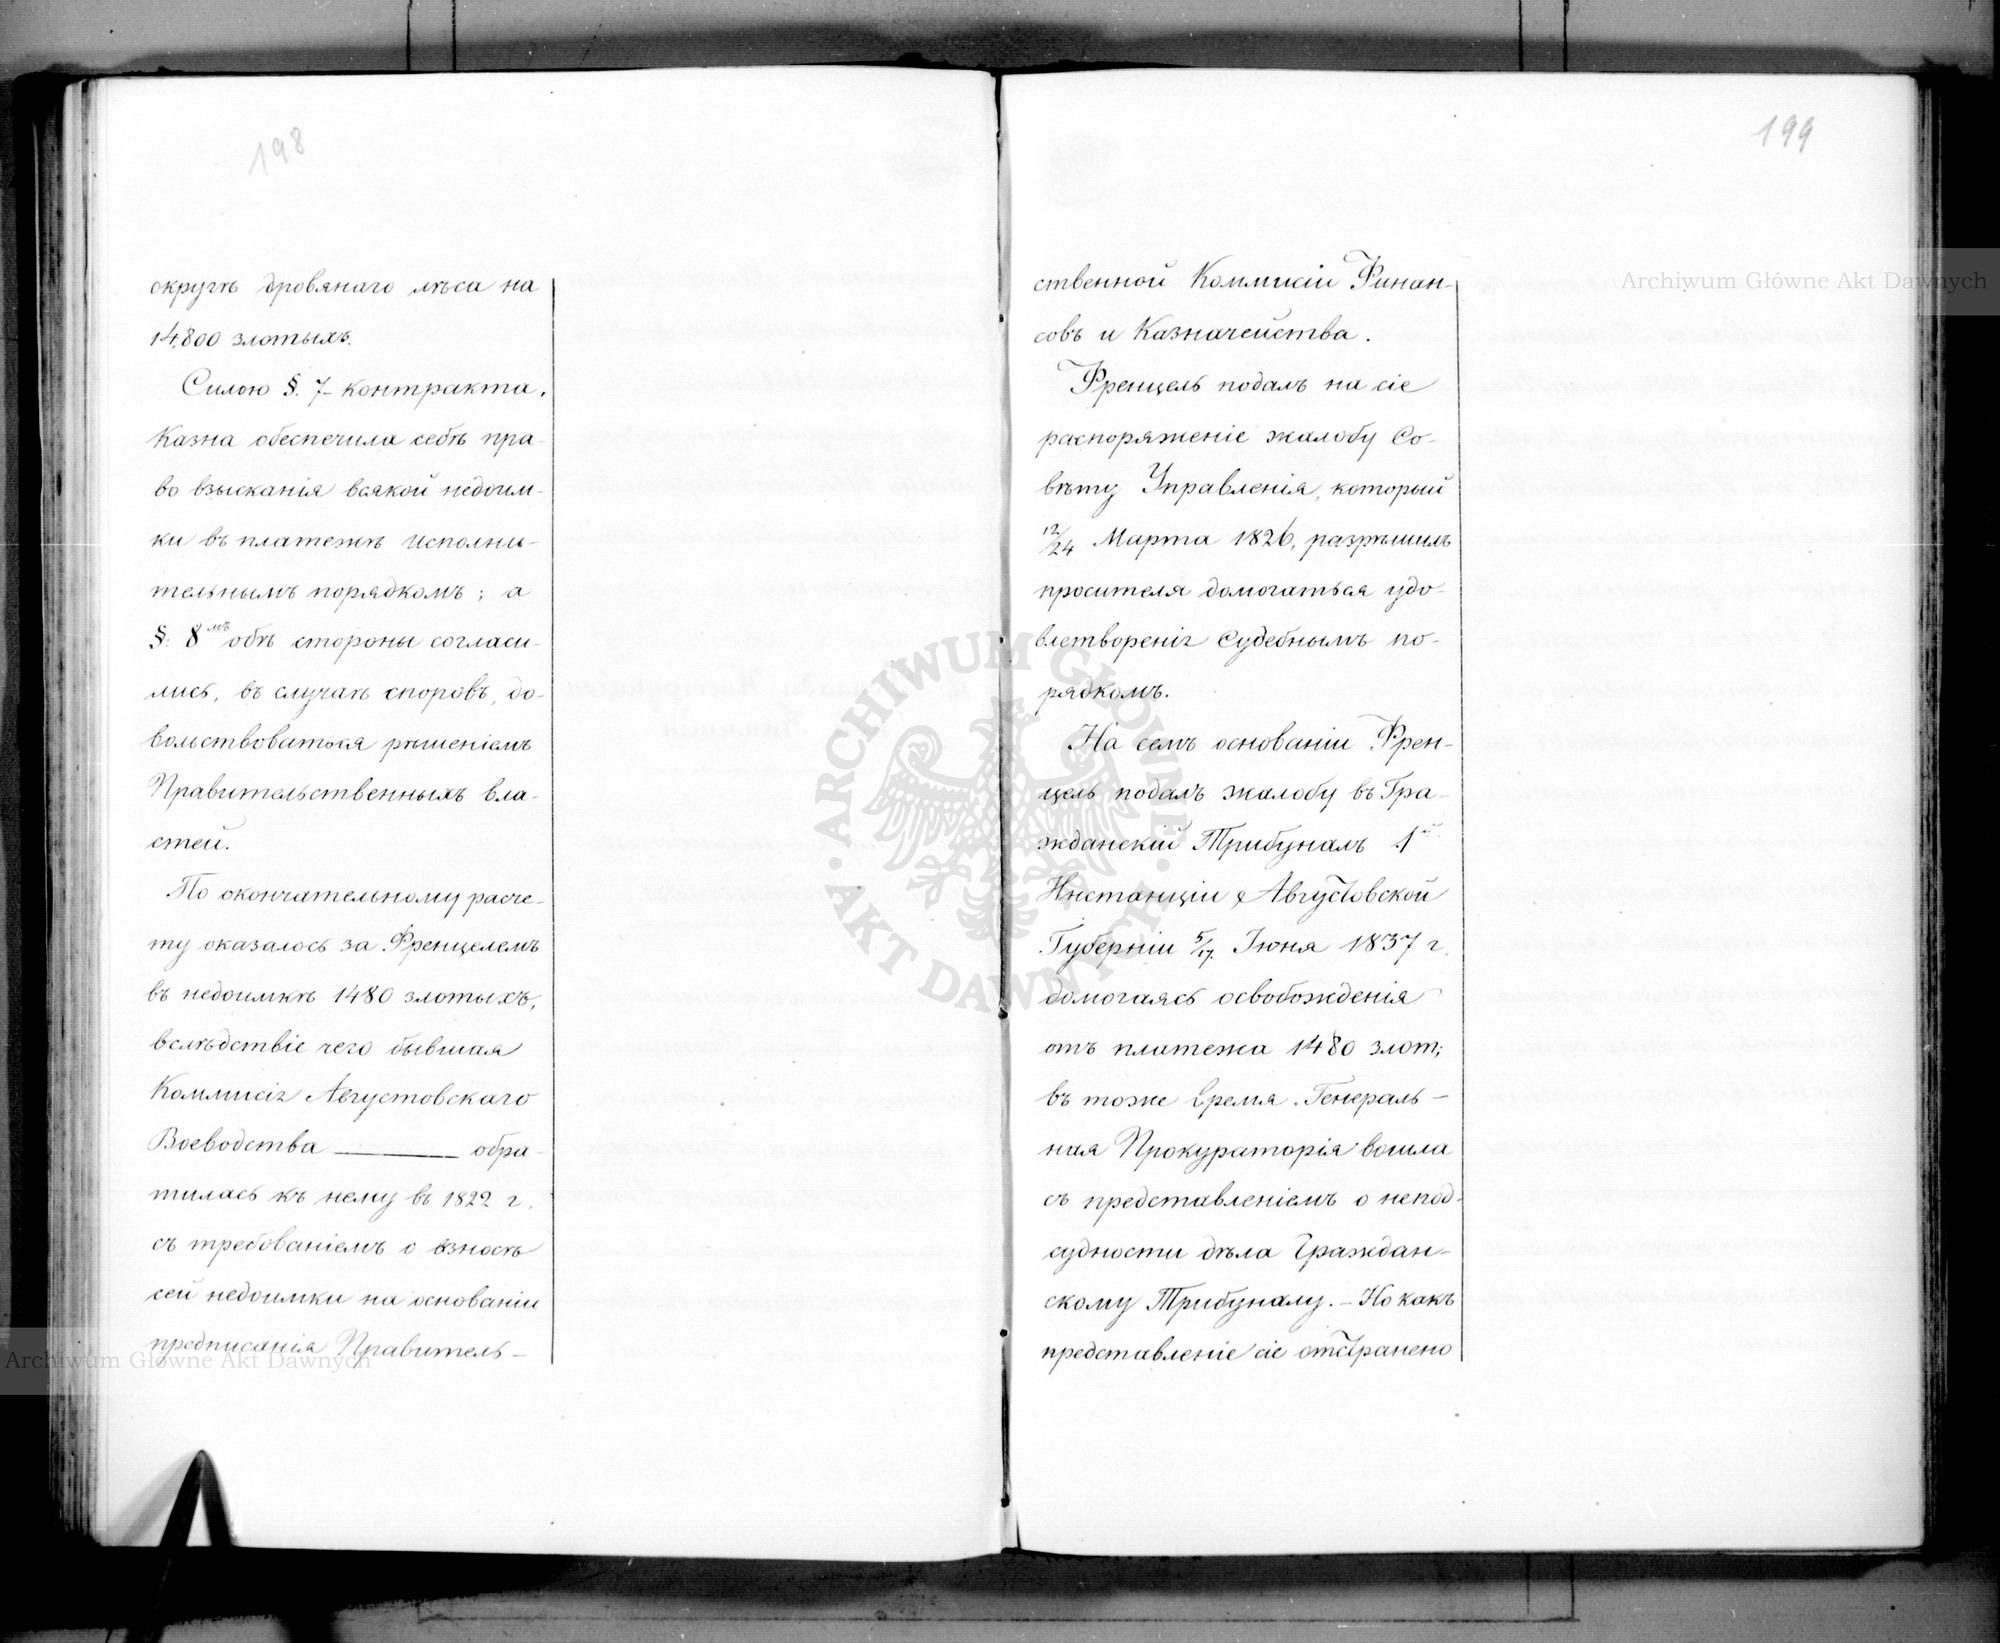 198
округѣ дровянаго лѣса на
14,800 злотыхъ.
Силою §. 7 контракта,
Казна обеспечила себѣ пра-
во взысканія всякой недоим-
ки въ платежѣ исполни-
тельнымъ порядкомъ; а
§. 8мъ обѣ стороны согласи-
лись, въ случаѣ споровъ, до-
вольствоваться рѣшеніемъ
Правительственныхъ вла-
стей.
По окончательному расче-
ту оказалось за Френцелемъ
въ недоимкѣ 1480 злотыхъ,
вслѣдствіе чего бывшая
Коммисія Августовскаго
Воеводства ——— обра-
тилась къ нему въ 1822 г.
съ требованіемъ о взносѣ
сей недоимки на основаніи
предписанія Правитель-
199
ственной Коммисіи Финан-
совъ и Казначейства.
Френцель подалъ на сіе
распоряженіе жалобу Со-
вѣту Управленія, который
12/24 Марта 1826, разрѣшилъ
просителя домогаться удо-
влетворенія Судебнымъ по-
рядкомъ.
На семъ основаніи Френ-
цель подалъ жалобу въ Гра-
жданскій Трибуналъ 1й
Инстанціи Августовской
Губерніи 5/17 Іюня 1837 г.
домогаясь освобожденія
отъ платежа 1480 злот;
въ тоже время Генераль-
ная Прокураторія вошла
съ представленіемъ о непод-
судности дѣла Граждан-
скому Трибуналу. - Но какъ
представленіе сіе отстранено
Archiwum Główne Akt Dawnych
Archiwum Główne Akt Dawnych
· ARCHIWUM GŁÓWNE · AKT DAWNYCH